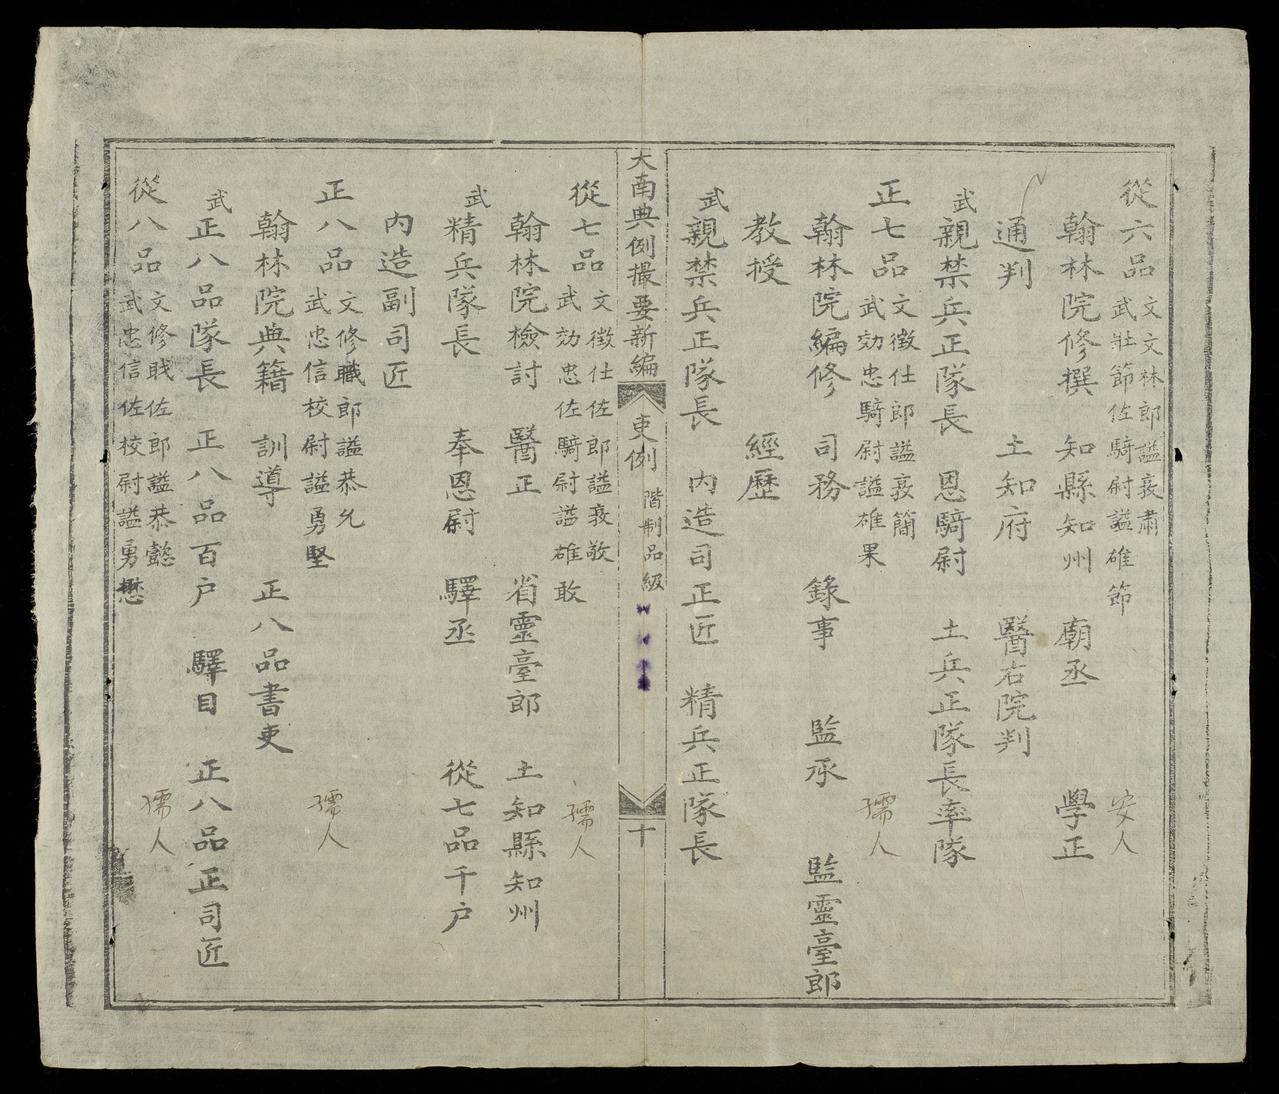 從六品 文文林郎謚衷肅 武壯節佐騎尉謚雄節 安人
翰林院修撰 知縣知州 廟丞 學正
通判 土知府 醫右院判
武親禁兵正隊長 恩騎尉 土兵正隊長率隊
正七品 文徵仕郎謚衷簡 武効忠騎尉謚雄果 孺人
翰林院編修 司務 錄事 監承 監靈臺郎
教授 經歷
武親禁兵正隊長 內造司正匠 精兵正隊長
大南典例撮要新編 吏例 階制品級 十
從七品 文徵仕佐郎謚衷敬 武効忠佐騎尉謚雄敢 孺人
翰林院檢討 醫正 省靈臺郎 土知縣知州
武精兵隊長 奉恩尉 驛丞 從七品千户
內造副司匠
正八品 文修職郎謚恭允 武忠信校尉謚勇堅 孺人
翰林院典籍 訓導 正八品書吏
武正八品隊長 正八品百户 驛目 正八品正司匠
從八品 文修戝佐郎謚恭懿 武忠信佐校尉謚勇懋 孺人